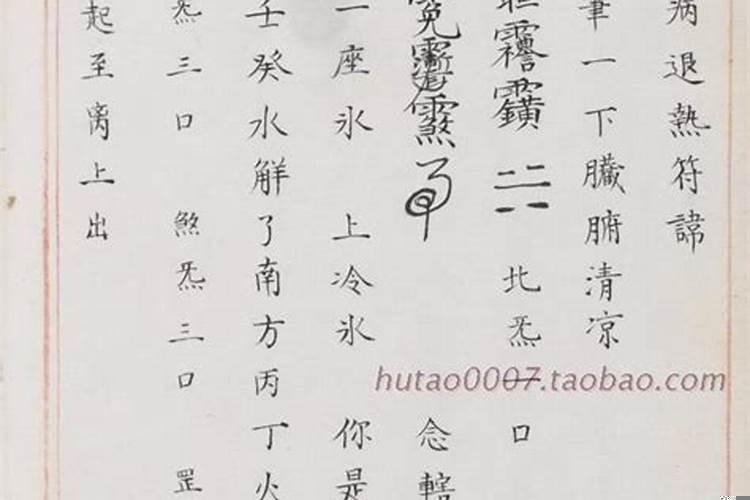 病退熱符諱
筆一下臟腑清凉
北炁 口
念
一座氷 上冷氷 你是
壬癸水解了南方丙丁火
炁三口 煞炁三口 罡
起至离上出
hutao0007.taobao.com